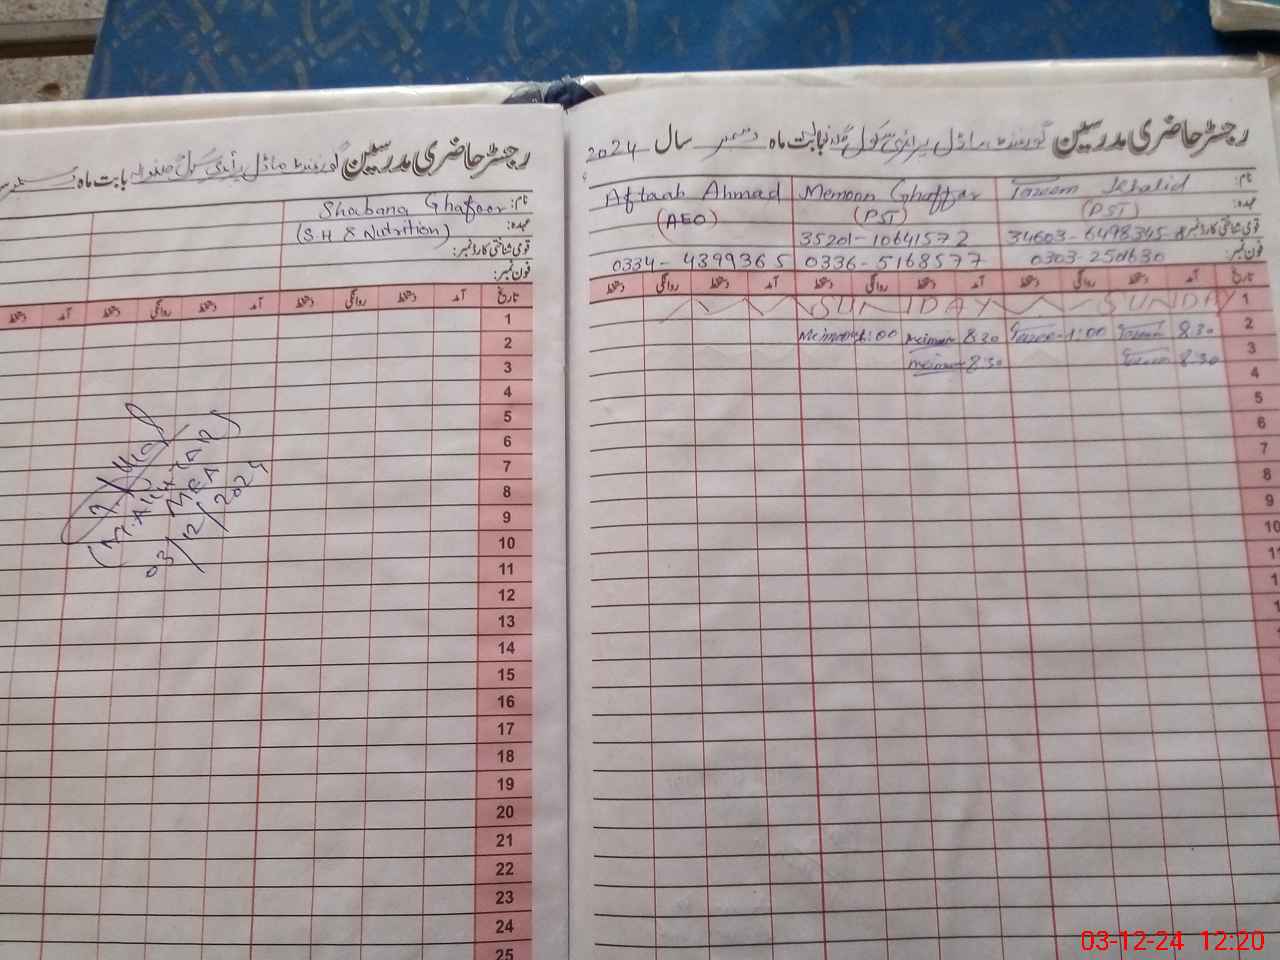 رجسٹر حاضری مدرسین گورنمنٹ ماڈل پرائمری سکول بابت ماہ دسمبر سال 2024
نام: Tazeem Khalid Memoon Ghaffar Aftaab Ahmad
عہدہ: (PST) (PST) (AEO)
قومی شناختی کارڈ نمبر: 34603-6498345-8 35201-1064157 2
فون نمبر: 0336-5168577 0334-4399365
تاریخ آمد دستخط روانگی دستخط آمد دستخط روانگی دستخط آمد دستخط روانگی دستخط
1 SUNDAY SUNDAY
2 8:30 1:00 8:30 1:00
3 8:30 8:30
4
5
6
7
8
9
10
11
رجسٹر حاضری مدرسین گورنمنٹ ماڈل پرائمری سکول بابت ماہ
نام: Shabana Ghafoor
عہدہ: (S.H & Nutrition)
قومی شناختی کارڈ نمبر:
فون نمبر:
تاریخ آمد دستخط روانگی دستخط آمد دستخط روانگی دستخط
1
2
3
4
5
6
7
8
9
10
11
12
13
14
15
16
17
18
19
20
21
22
23
24
25
MEA
03/12/2024
03-12-24 12:20